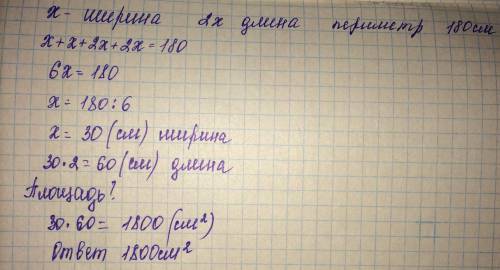 х - ширина 2х длина периметр 180см
х+х+2х+2х=180
6х=180
х=180:6
х=30(см) ширина
30·2=60(см) длина
Площадь?
30·60=1800(см²)
Ответ 1800см²